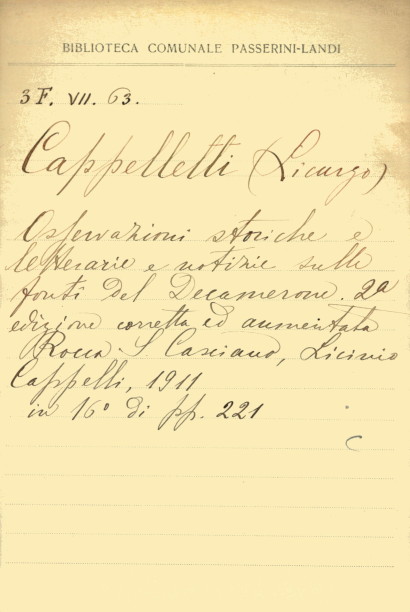 BIBLIOTECA COMUNALE PASSERINI-LANDI
3 F. VII. 63.
Cappelletti (Licurgo)
Osservazioni storiche e
letterarie e notizie sulle
fonti del Decamerone. 2ª
edizione corretta ed aumentata
Rocca S. Casciano, Licinio
Cappelli, 1911
in 16° di pp. 221